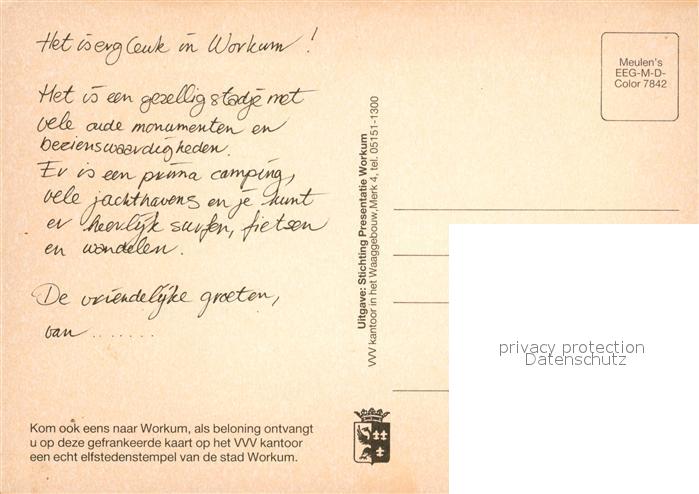 Het is erg leuk in Workum!
Het is een gezellig stadje met
vele oude monumenten en
bezienswaardigheden.
Er is een prima camping,
vele jachthavens en je kunt
er heerlijk surfen, fietsen
en wandelen.
De vriendelijke groeten,
van .......
Kom ook eens naar Workum, als beloning ontvangt
u op deze gefrankeerde kaart op het VVV kantoor
een echt elfstedenstempel van de stad Workum.
Uitgave: Stichting Presentatie Workum
VVV kantoor in het Waaggebouw, Merk 4, tel. 05151-1300
Meulen's
EEG-M-D-
Color 7842
privacy protection
Datenschutz